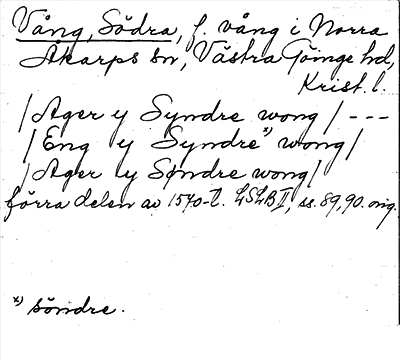 Vång, Södra, f. vång i Norra
Åkarps sn, Västra Göinge hd,
Krist. l.
| Ager y Syndre wong | ---
| Eng y Syndre*) wong |
| Ager y Søndre wong |
förra delen av 1570-t. LSLB II, ss. 89, 90. orig.
*) söndre.